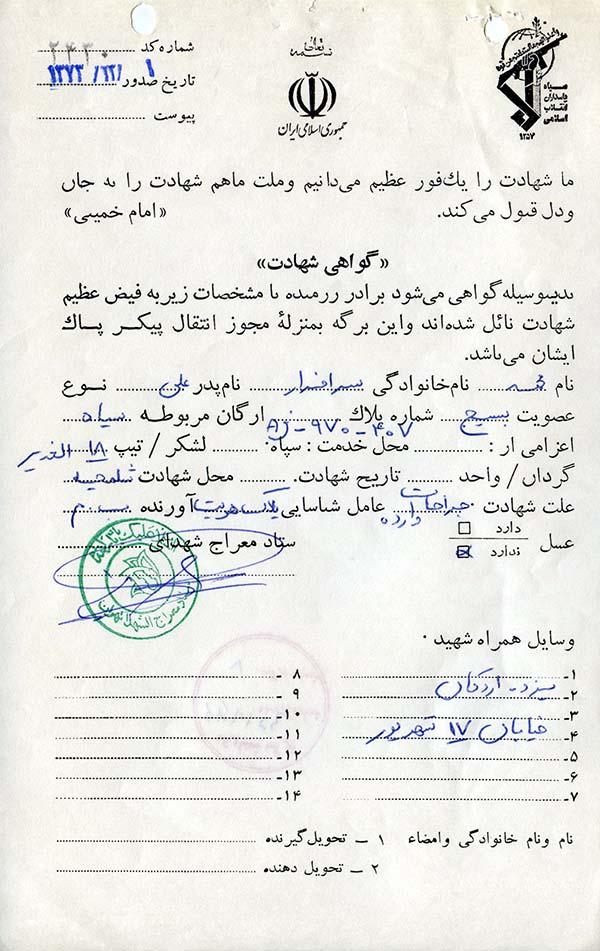 بسمه تعالی
جمهوری اسلامی ایران
سپاه
پاسداران
انقلاب
اسلامی
۱۳۵۷
شماره کد ۲۴۳۰
تاریخ صدور ۱۳۷۳/۱۲/۱
پیوست
ما شهادت را یك فوز عظیم می‌دانیم وملت ماهم شهادت را به جان
ودل قبول می‌کند. «امام خمینی»
«گواهی شهادت»
بدینوسیله گواهی می‌شود برادر رزمنده با مشخصات زیر به فیض عظیم
شهادت نائل شده‌اند واین برگه بمنزلهٔ مجوز انتقال پیکر پاك
ایشان می‌باشد.
نام محمد نام‌خانوادگی سرافراز نام‌پدر علی نوع
عضویت بسیج شماره پلاك AJ-۹۷۰-۴۰۷ ارگان مربوطه سپاه
اعزامی از: محل خدمت: سپاه لشکر / تیپ ۱۸ الغدیر
گردان / واحد تاریخ شهادت. محل شهادت شلمچه
علت شهادت جراحات وارده عامل شناسایی پلاک هویت آورنده
غسل دارد ☐ ندارد ☒
ستاد معراج شهدای
وسایل همراه شهید
۱-
۲- یزد - اردکان
۳-
۴- خیابان ۱۷ شهریور
۵-
۶-
۷-
۸-
۹-
۱۰-
۱۱-
۱۲-
۱۳-
۱۴-
نام ونام خانوادگی وامضاء ۱ – تحویل‌گیرنده
۲ – تحویل دهنده